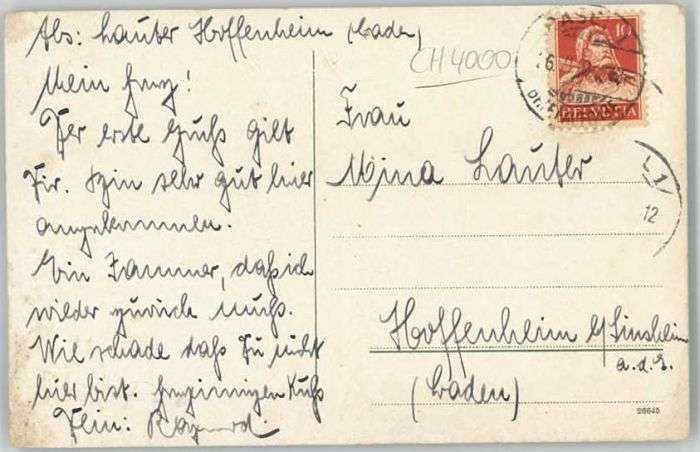 Abs: Lauter Hoffenheim (Baden)
CH 4000
Mein Herz!
Der erste Gruß gilt
Dir. Bin sehr gut hier
angekommen.
Ein Jammer, daß ich
wieder zurück muß.
Wie schade daß Du nicht
hier bist. Kuß
Dein:
BASEL
10
HELVETIA
Frau
Mina Lauter
12
Hoffenheim b/Sinsheim
a.d.E.
(Baden)
26645